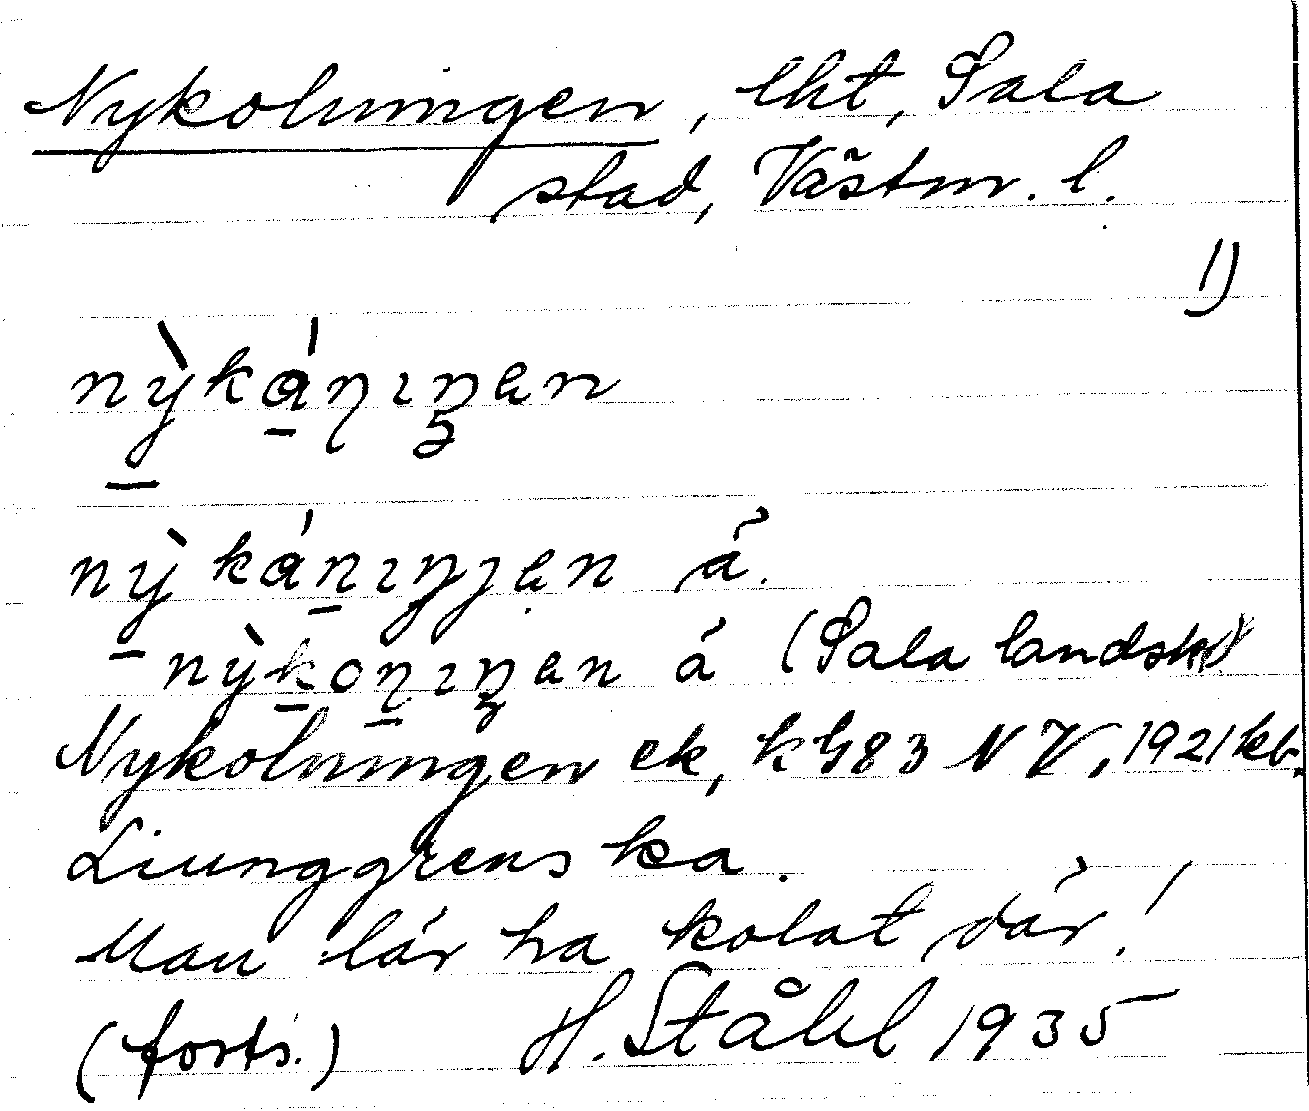 Nykolningen, lht, Sala
stad, Västm. l.
1)
nỳkáṇıŋen
nỳkáṇıŋjen å.
nỳkoṇıŋen å (Sala landsk)
Nykolningen ek, k 483 NV, 1921 kb.
Liunggrens ka.
Man lär ha kolat där!
(forts.) H. Ståhl 1935